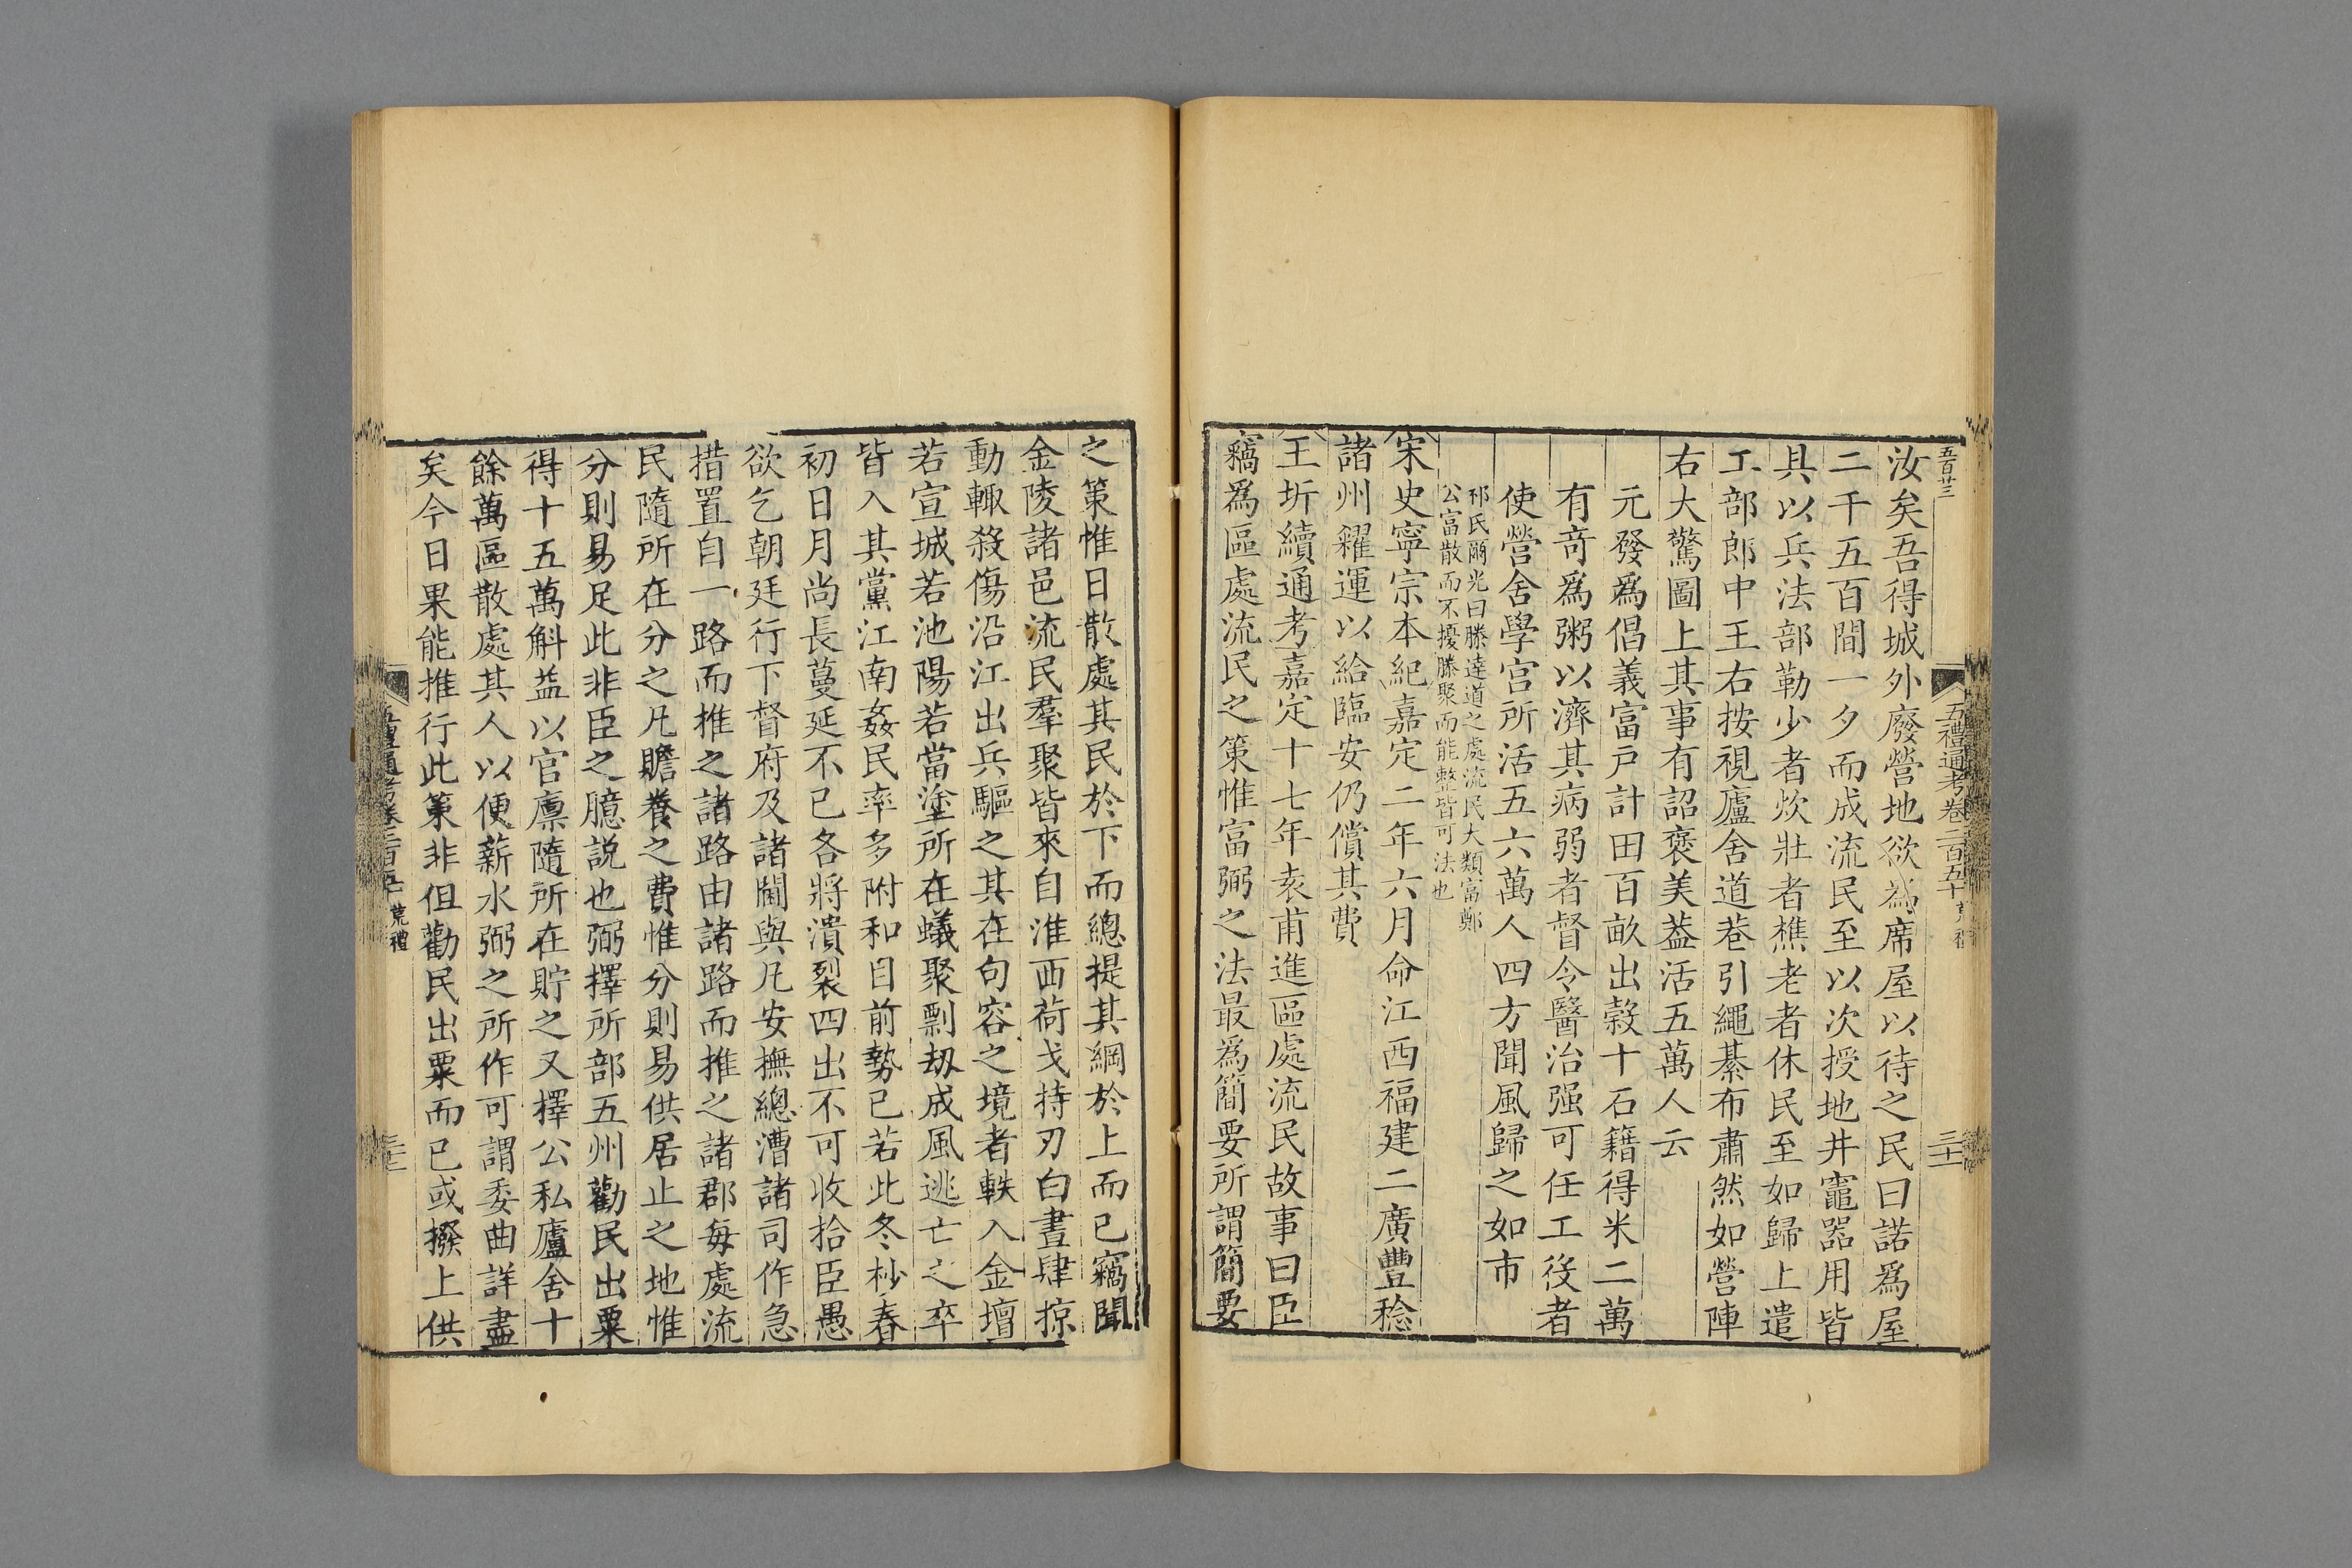 五百廿三
五禮通考卷二百五十 荒禮
三十二
汝矣吾得城外廢營地欲爲席屋以待之民曰諾爲屋
二千五百間一夕而成流民至以次授地井竈器用皆
具以兵法部勒少者炊壯者樵老者休民至如歸上遣
工部郎中王右按視廬舍道巷引繩棊布肅然如營陣
右大驚圖上其事有詔褒美葢活五萬人云
元發爲倡義富戸計田百畝出榖十石籍得米二萬
有竒爲粥以濟其病弱者督令醫治强可任工役者
使營舍學宫所活五六萬人四方聞風歸之如市
邳氏爾光曰滕達道之處流民大類富鄭
公富散而不擾滕聚而能整皆可法也
宋史寧宗本紀嘉定二年六月命江西福建二廣豐稔
諸州糴運以給臨安仍償其費
王圻續通考嘉定十七年袁甫進區處流民故事曰臣
竊爲區處流民之策惟富弼之法最爲簡要所謂簡要
之策惟曰散處其民於下而總提其綱於上而已竊聞
金陵諸邑流民羣聚皆來自淮西荷戈持刃白晝肆掠
動輙殺傷沿江出兵驅之其在句容之境者軼入金壇
若宣城若池陽若當塗所在蟻聚剽刼成風逃亡之卒
皆入其黨江南姦民率多附和目前勢已若此冬杪春
初日月尚長蔓延不已各將潰裂四出不可收拾臣愚
欲乞朝廷行下督府及諸閫與凡安撫總漕諸司作急
措置自一路而推之諸路由諸路而推之諸郡每處流
民隨所在分之凡贍養之費惟分則易供居止之地惟
分則易足此非臣之臆説也弼擇所部五州勸民出粟
得十五萬斛益以官廪隨所在貯之又擇公私廬舍十
餘萬區散處其人以便薪水弼之所作可謂委曲詳盡
矣今日果能推行此策非但勸民出粟而已或撥上供
荒禮